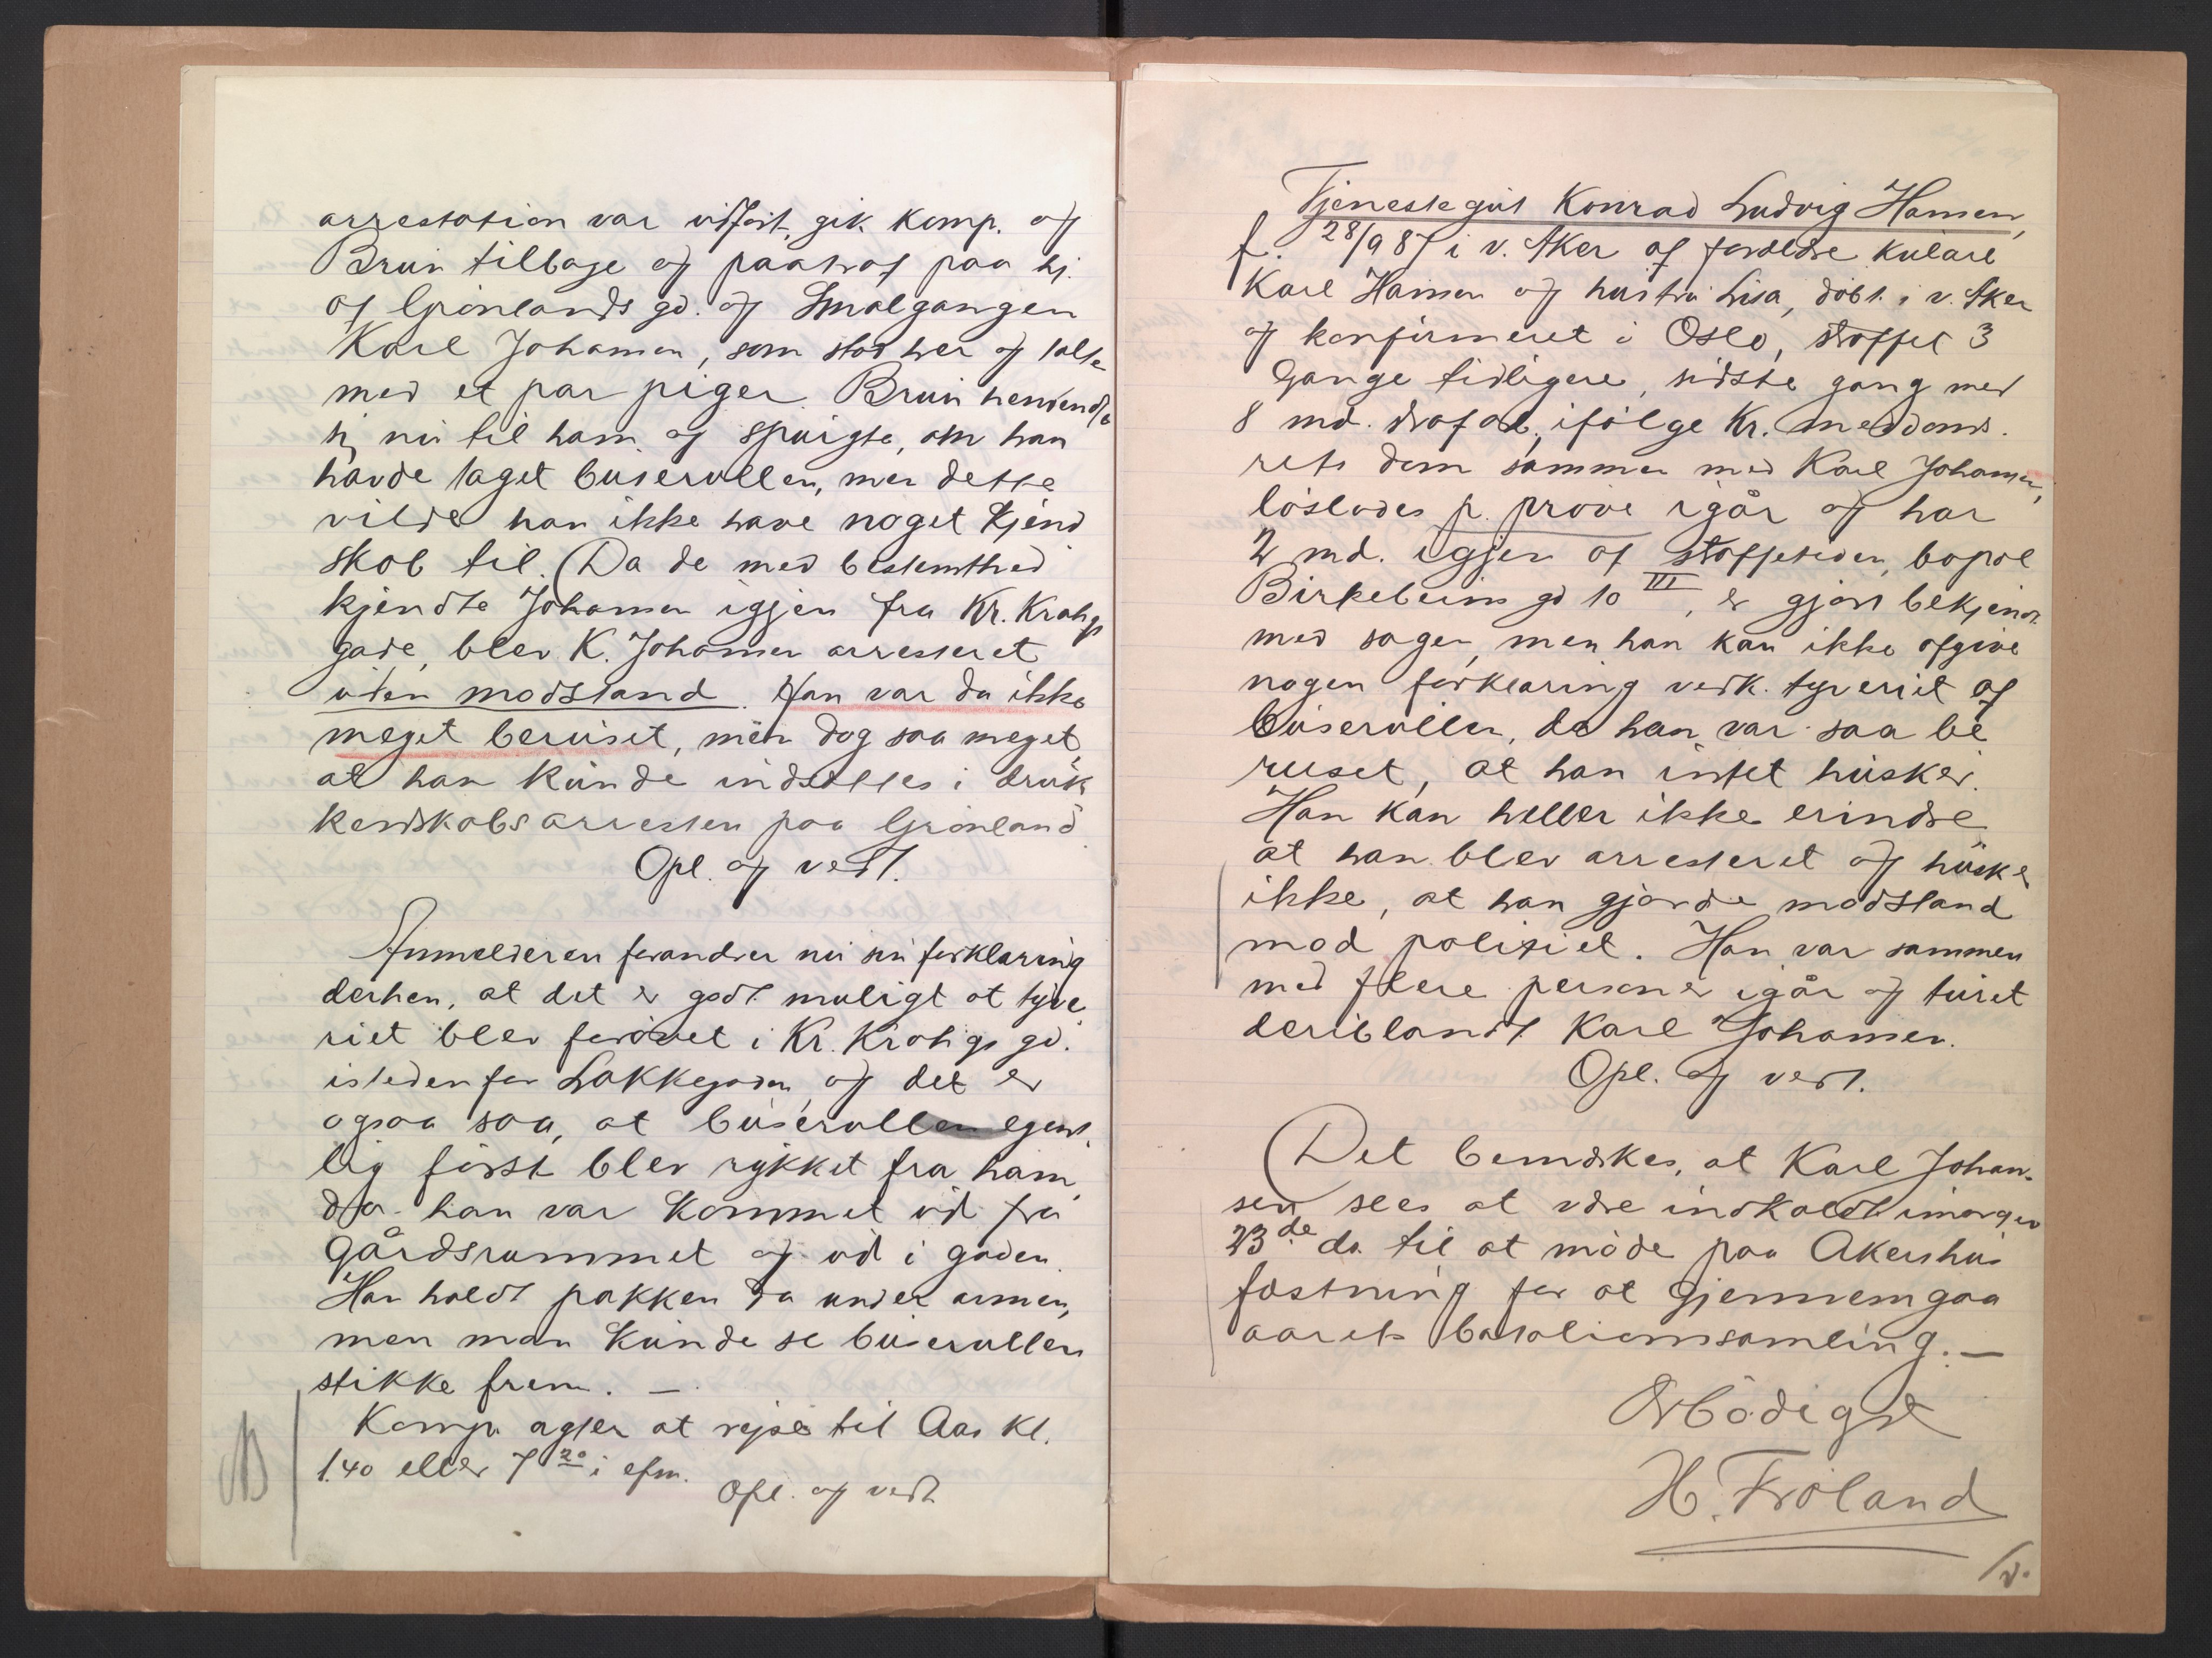 arrestation var udført, gik komp. og
Bruun tilbage og paatraf paa hj.
af Grönlands gd. og Smalgangen
Karl Johansen, som stod her og talte
med et par piger. Bruun henvendte
sig nu til ham og spurgte, om han
havde taget buserullen, men dette
vilde han ikke have noget kjend
skab til. Da de med bestemthed
kjendte Johansen igjen fra Kr. Krohgs
gade, blev K. Johansen arresteret
uden modstand. Han var da ikke
meget beruset, men dog saa meget
at han kunde indsættes i druk
kenskabsarresten paa Grönland
Opl. og vedt.
Anmelderen forandrer nu sin forklaring
derhen, at det er godt muligt at tyve
riet blev forøvet i Kr. Krohgs gd.
istedenfor Lakkegaden, og det er
ogsaa saa, at buserullen egent
lig först blev rykket fra ham,
da han var kommet ud fra
gårdsrummet og ud i gaden.
Han holdt pakken da under armen,
men man kunde se buserullen
stikke frem. —
Komp. agter at rejse til Aas kl.
1.40 eller 7 20 i efm.
Opl. og vedt.
Tjenestegut Konrad Ludvig Hansen,
f. 28/9 87 i v. Aker af forældre kulare
Karl Hansen og hustru Lisa, döbt i v. Aker
og konfirmeret i Oslo, straffet 3
Gange tidligere, sidste gang med
8 md. strafarb. ifölge Kr. meddoms.
rets dom sammen med Karl Johansen,
löslades p. pröve igår og har
2 md. igjen af straffetiden, bopæl
Birkebeiins gd 10 III, er gjort bekjendt
med sagen, men han kan ikke afgive
nogen forklaring vedk. tyveriet af
buserullen, da han var saa be
ruset, at han intet husker.
Han kan heller ikke erindre
at han blev arresteret og husker
ikke, at han gjorde modstand
mod politiet. Han var sammen
med flere personer igår og turet
deriblandt Karl Johansen.
Opl. og vedt.
Det bemærkes, at Karl Johan-
sen sees at være indkaldt imorgen
23de ds til at möde paa Akershus
fæstning for at gjennemgaa
aarets bataljonssamling. —
Ærbödigst
H. Fröland
/v.